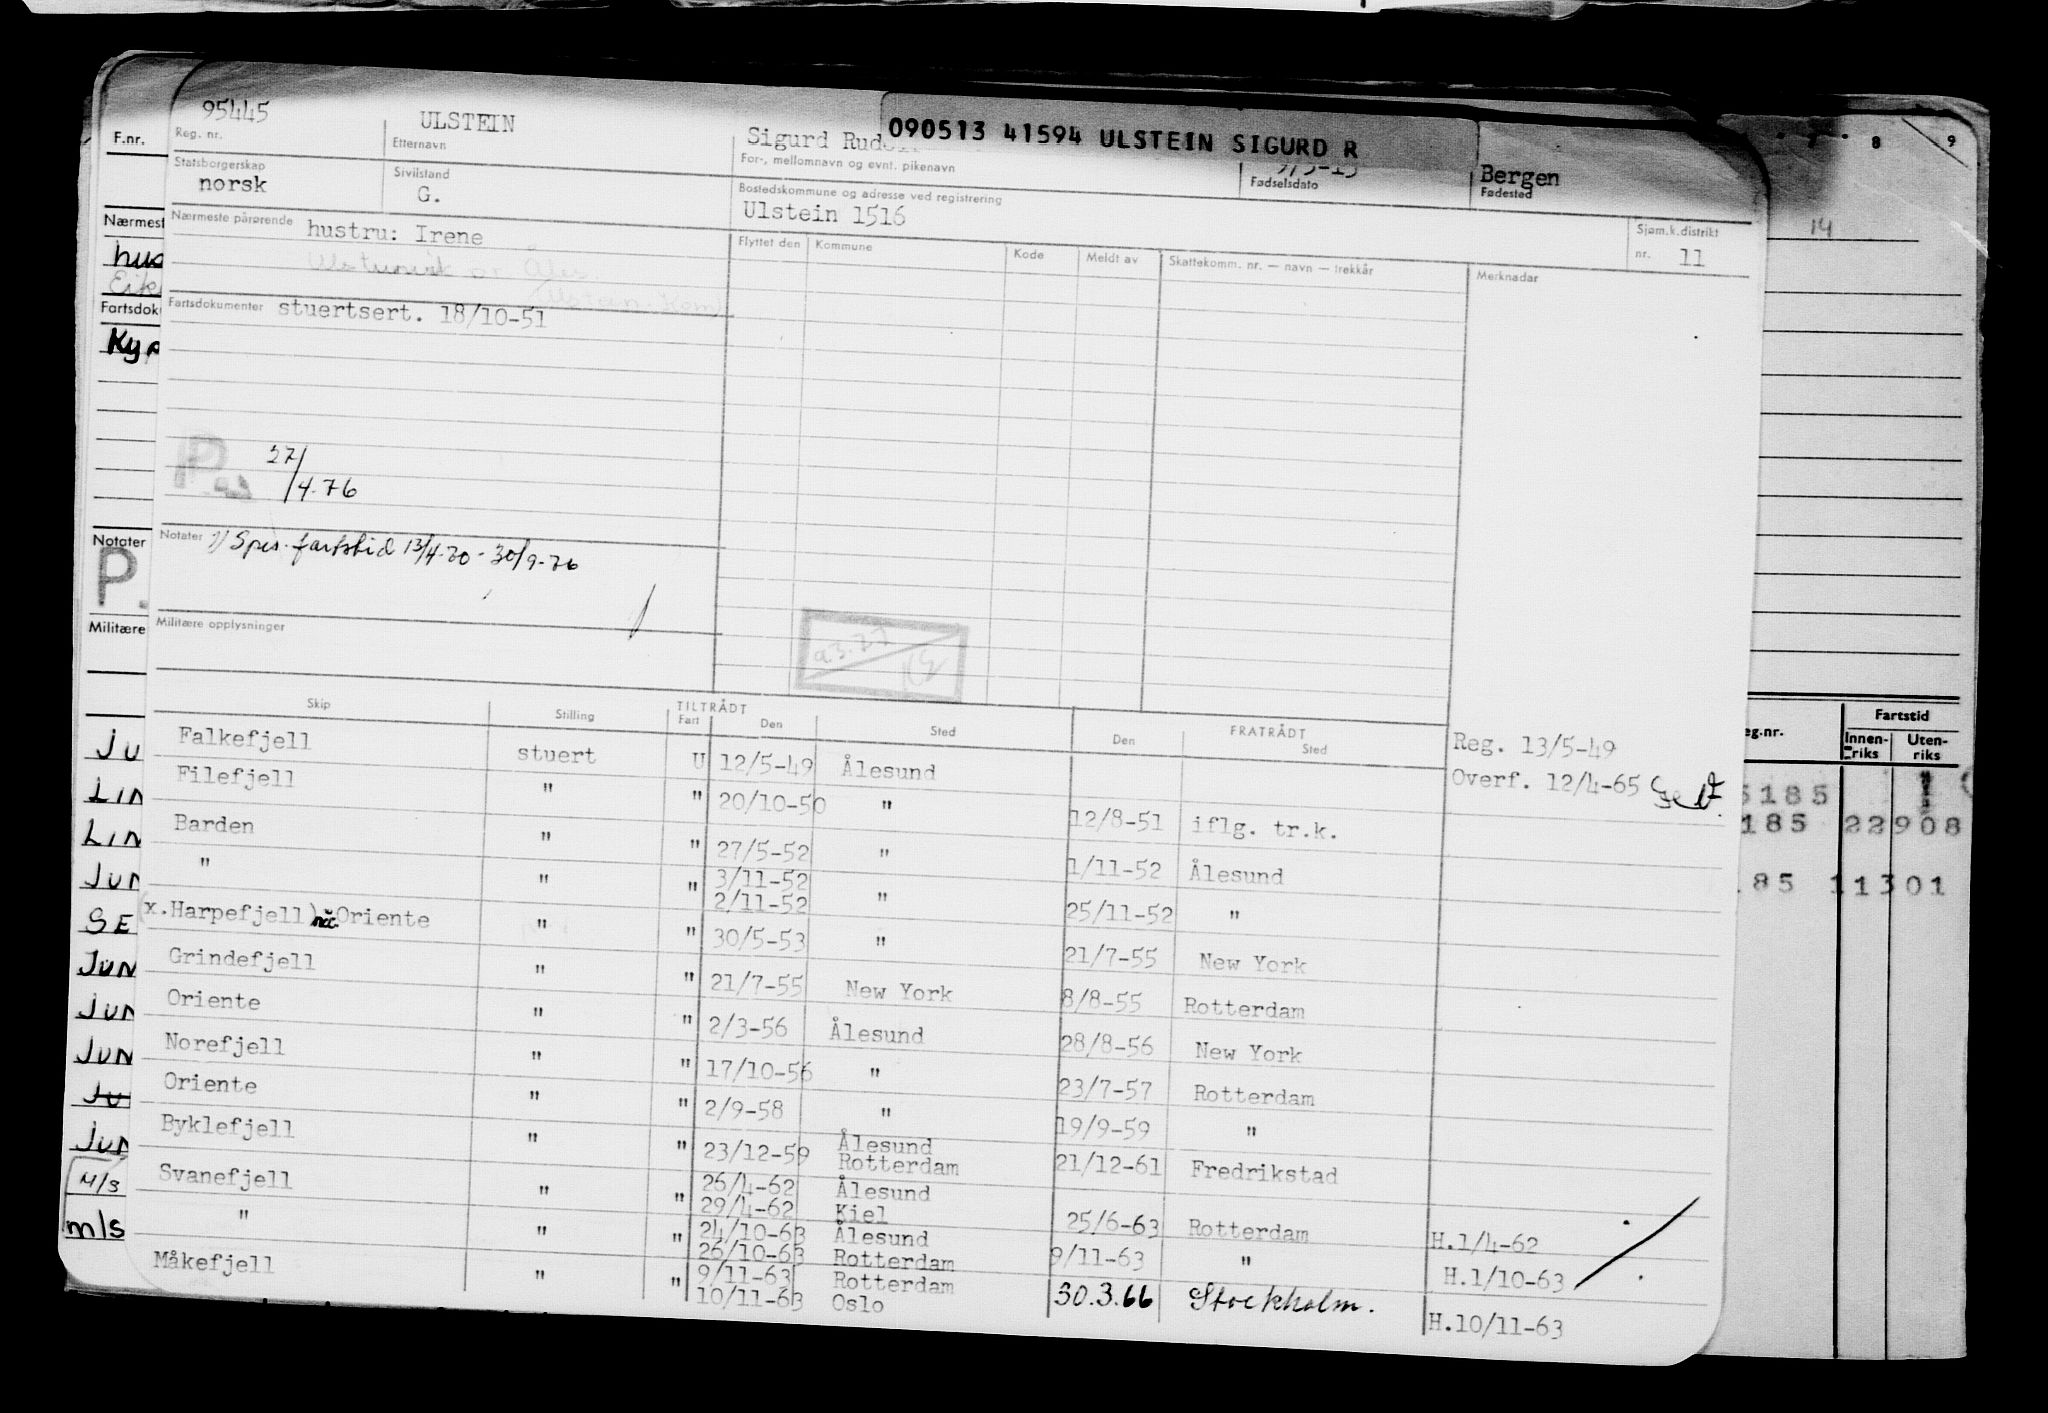 95445 ULSTEIN Sigurd Rud 090513 41594 ULSTEIN SIGURD R
F.nr. Reg. nr. Etternavn For-, mellomnavn og evnt. pikenavn Fødselsdato Bergen Fødested 8 9
Statsborgerskap Sivilstand Bostedskommune og adresse ved registrering
norsk G. Ulstein 1516
Nærmest Nærmeste pårørende hustru: Irene Flyttet den Kommune Kode Meldt av Skattekomm. nr. — navn — trekkår Merknadar Sjøm.k.distrikt nr. 11 14
Fartsdok Fartsdokumenter stuertsert. 18/10-51
P. 27/4.76
Notater Notater 1) Spes. fartstid 13/4-70 - 30/9-76
P.
Militære Militære opplysninger
TILTRÅDT FRATRÅDT
Skip Stilling Fart Den Sted Den Sted
Fartstid
eg.nr. Innen-riks Uten-riks
Falkefjell stuert U 12/5-49 Ålesund Reg. 13/5-49
Filefjell " " 20/10-50 " 12/8-51 iflg. tr.k. Overf. 12/4-65
Barden " " 27/5-52 " 1/11-52 Ålesund
" " " 3/11-52
2/11-52 " 25/11-52 "
(x.Harpefjell) nå Oriente " " 30/5-53 " 21/7-55 New York
Grindefjell " " 21/7-55 New York 8/8-55 Rotterdam
Oriente " " 2/3-56 Ålesund 28/8-56 New York
Norefjell " " 17/10-56 " 23/7-57 Rotterdam
Oriente " " 2/9-58 " 19/9-59 "
Byklefjell " " 23/12-59 Ålesund
Rotterdam 21/12-61 Fredrikstad
Svanefjell " " 26/4-62 Ålesund
29/4-62 Kiel 25/6-63 Rotterdam H.1/4-62
" " " 24/10-63 Ålesund
26/10-63 Rotterdam 9/11-63 " H.1/10-63
Måkefjell " " 9/11-63 Rotterdam
10/11-63 Oslo 30.3.66 Stockholm. H.10/11-63
5185
185 22908
185 11301
M/S
m/s